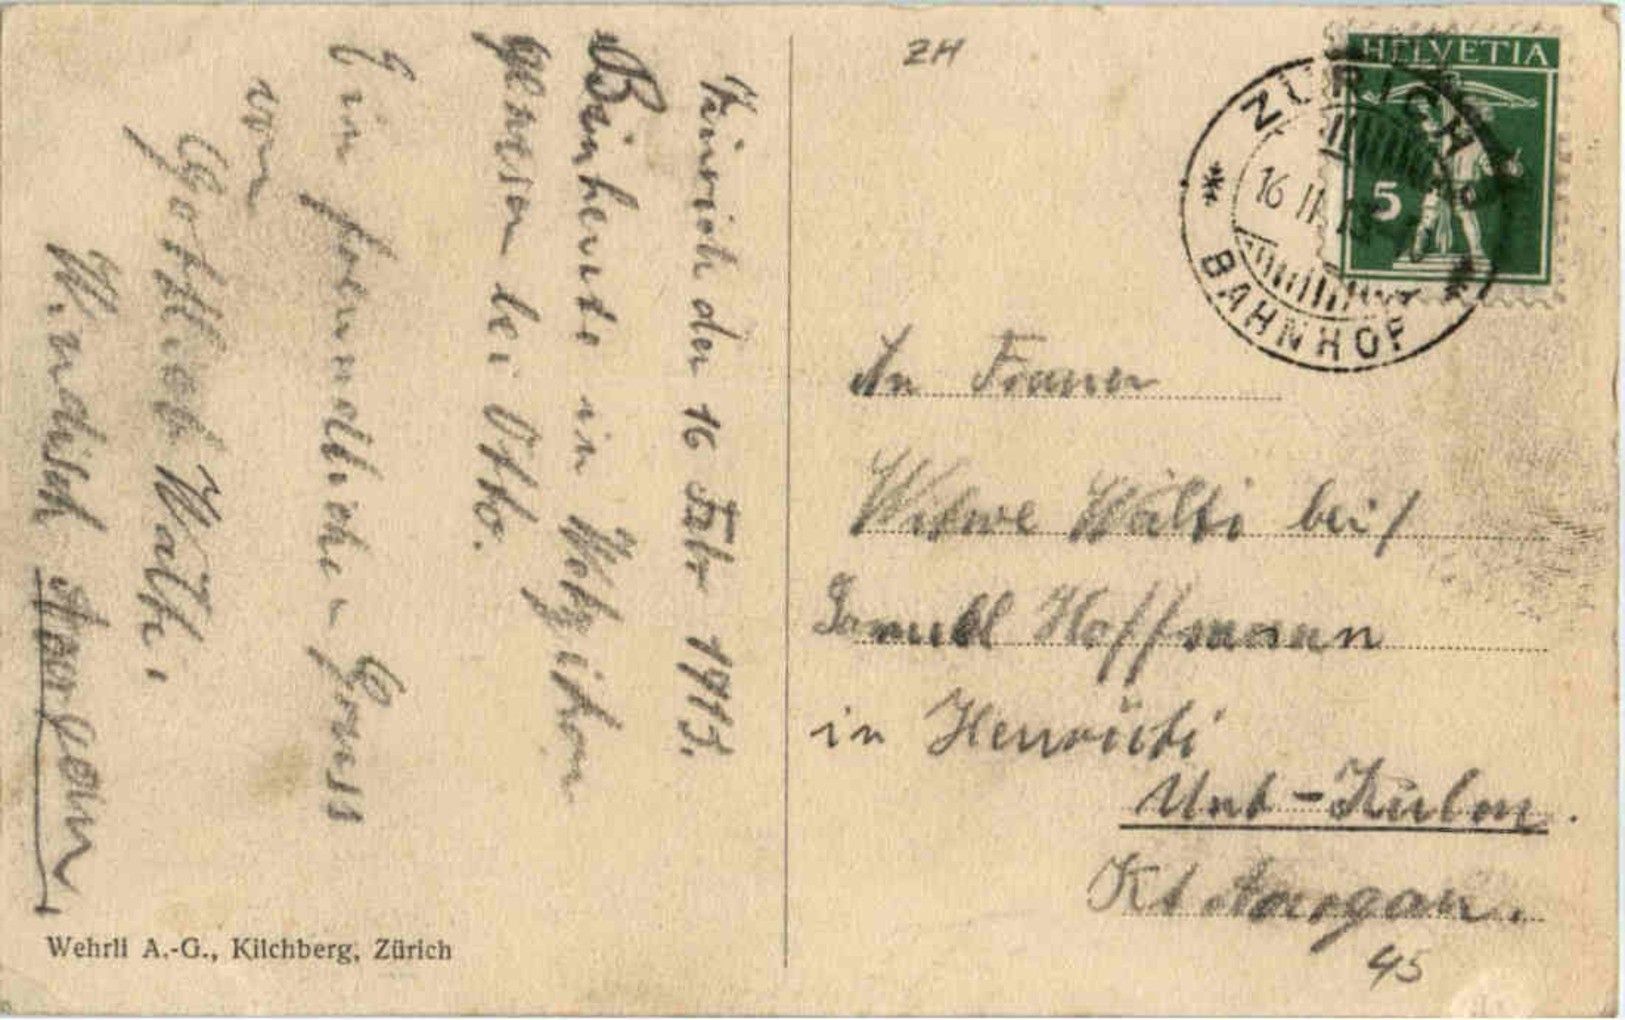 Zürich den 16 Febr 1913.
Bin heute in Wetzikon
gewesen bei Otto.
Ein freundlichen Gruss
von
Gottlieb Wälti.
Windisch Aargau
Wehrli A.-G., Kilchberg, Zürich
ZH
HELVETIA
5
ZÜRICH
16 II 13
BAHNHOF
An Frauen
Witwe Wälti bei
Samuel Hoffmann
in
Unt-Kulm.
Kt Aargau.
45